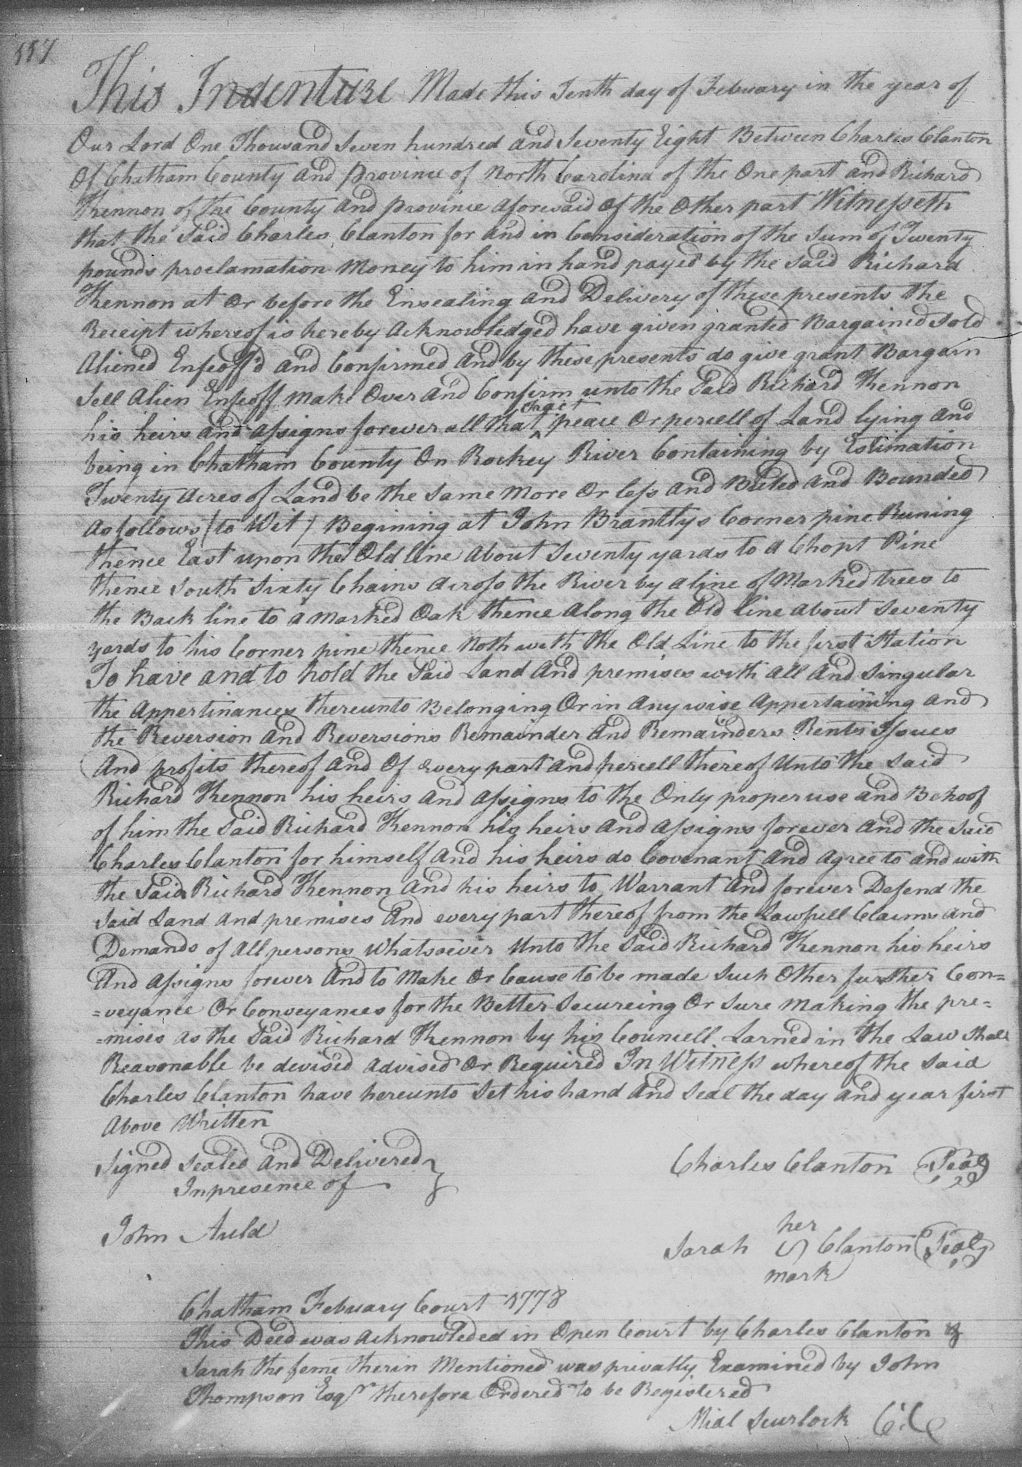 117
This Indenture Made this Tenth day of Febuary in the year of
Our Lord One Thousand Seven hundred and Seventy Eight Between Charles Clanton
Of Chatham County and Province of North Carolina of the One part and Richard
Kennon of the County and province aforesaid Of the Other part Witnesseth
that the Said Charles Clanton for and in Consideration of the Sum of Twenty
pounds proclamation Money to him in hand payed by the said Richard
Kennon at or before the Ensealing and Delivery of these presents the
Receipt whereof is hereby Acknowledged have given granted Bargained Sold
Aliened Enfeoff'd and Confirmed and by these presents do give grant Bargain
Sell Alien Enfeoff make Over and Confirm unto the Said Richard Kennon
his heirs and assigns forever all that Tract peace Or percell of Land lying and
being in Chatham County On Rockey River Containing by Estimation
Twenty Acres of Land be the same More Or less and Buted and Bounded
As follows (to Wit) Begining at John Brantlys Corner pine Runing
thence East upon the Old line About Seventy yards to a Chopt Pine
thence South Sixty Chains Across the River by a line of Marked trees to
the Back line to a marked Oak thence Along the Old line about Seventy
yards to his Corner pine thence Noth with the Old Line to the first Station
To have and to hold the Said Land And premises with all And Singular
the Appertinances thereunto Belonging Or in Anywise Appertaining and
the Reversion and Reversions Remainder And Remainders Rents Issues
And profits thereof and Of every part and percell thereof Unto the Said
Richard Kennon his heirs and Assigns to the Only proper use and Behoof
of him the Said Richard Kennon his heirs And Assigns forever And the Said
Charles Clanton for himself And his heirs do Covenant And Agree to and with
the Said Richard Kennon And his heirs to Warrant And forever Defend the
Said Land and premises And every part thereof from the Lawfull Claims and
Demands of All persons Whatsoever Unto the Said Richard Kennon his heirs
And Assigns forever And to Make Or Cause to be made Such Other further Con=
=veyance Or Conveyances for the Better Secureing Or Sure Making the pre=
=mises as the Said Richard Kennon by his Councell Larned in the Law Shall
Reasonable be devised advised Or Required In Witness whereof the Said
Charles Clanton have hereunto Set his hand And Seal the day and year first
Above Written
Signed Sealed And Delivered
In presence of
Charles Clanton Seal
John Auld
her
Sarah S Clanton Seal
mark
Chatham Febuary Court 1778
This Deed was Acknowleded in Open Court by Charles Clanton &
Sarah the feme therin Mentioned was privatly Examined by John
Thompson Esqr therefore Ordered to be Registered
Mial Scurlock C:C